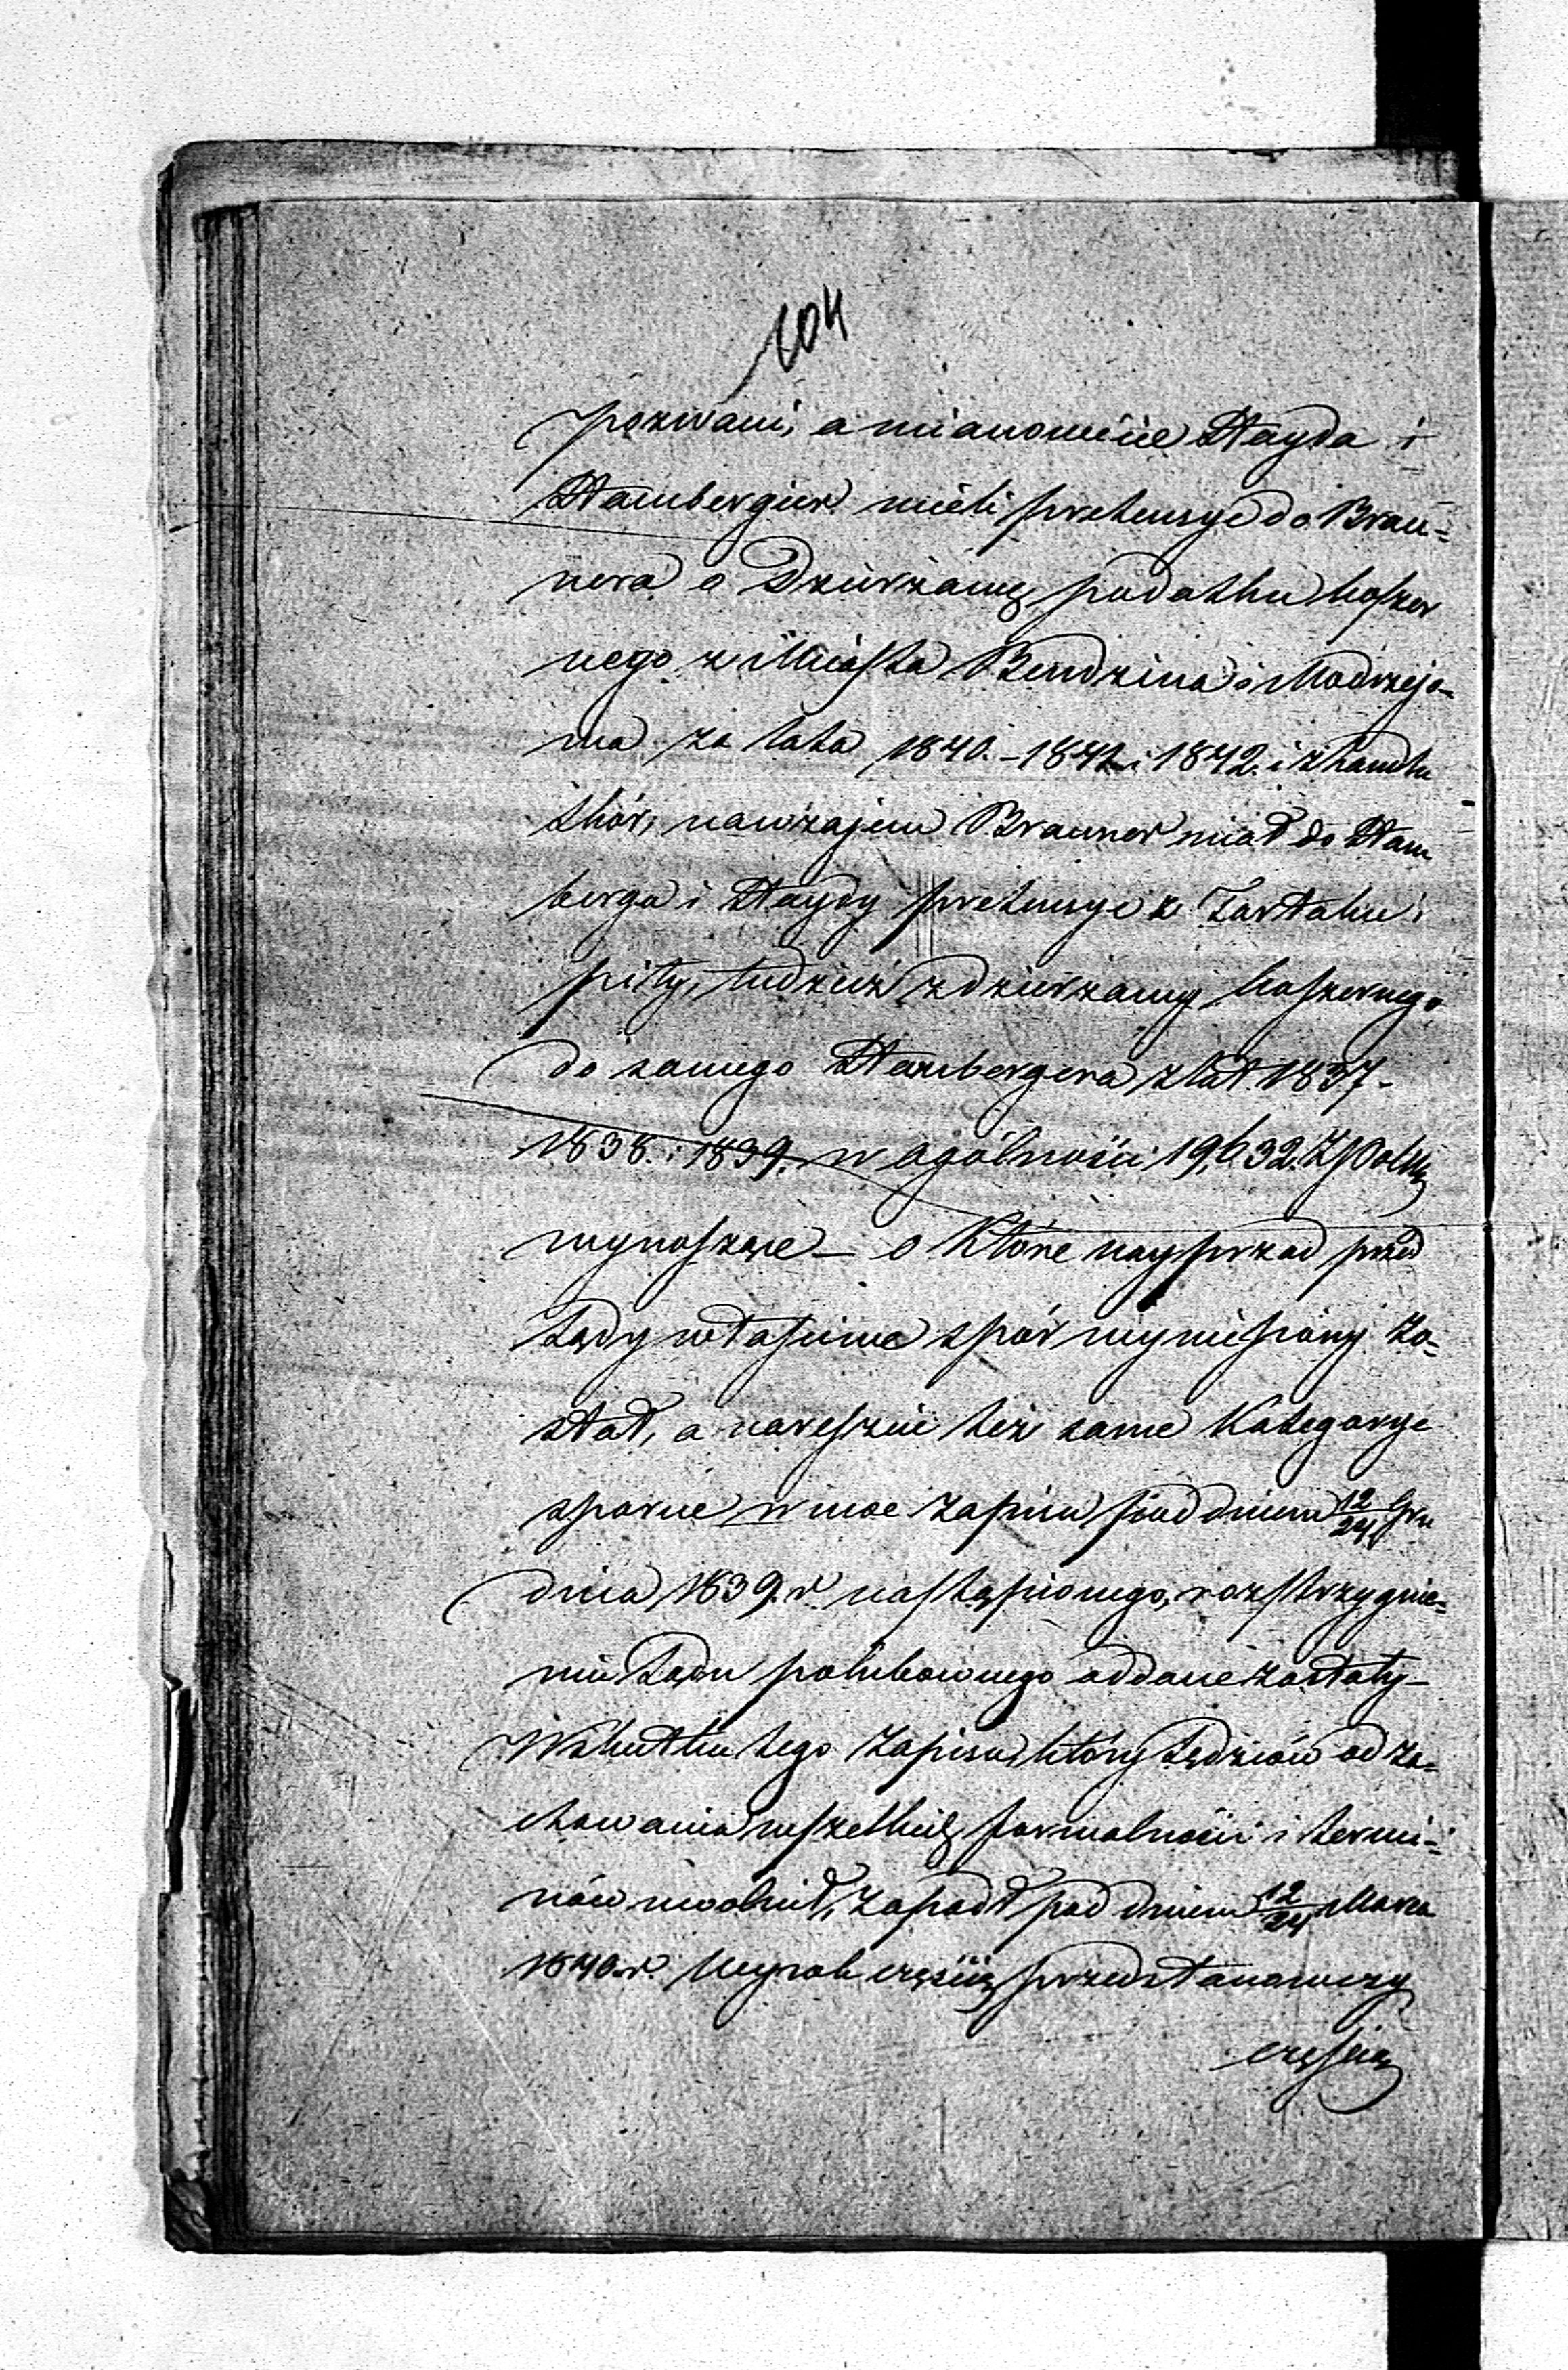 104
pozwani, a mianowicie Stayda i
Stambergier mieli pretensye do Brau=
nera o Dzierżawę podatku koszer
nego z Miasta Bendzina i Modrzejo=
wa za lata 1840.-1841 i 1842. i z handlu
skór, nawzajem Brauner miał do Stam
berga i Staydy pretensye z Tartaku i
piły, tudzież z dzierżawy koszernego
do samego Stambergera z lat 1837.
1838. i 1839. w ogólności 19,632. Zł Polsk
wynoszące – o które nayprzód przed
Sądy właściwe spór wyniesiony zo=
stał, a nareszcie też same Kategorye
sporne w moc zapisu pod dniem 12/24 Gru
dnia 1839. r. nastąpionego, rozstrzygnie=
niu Sądu polubownego oddane zostały –
W skutku tego Zapisu, który Sędziów od za=
chowania wszelkich formalności i termi=
nów uwolnił, zapadł pod dniem 12/24 Marca
1840. r. Wyrok częścią przedstanowczy
częścią